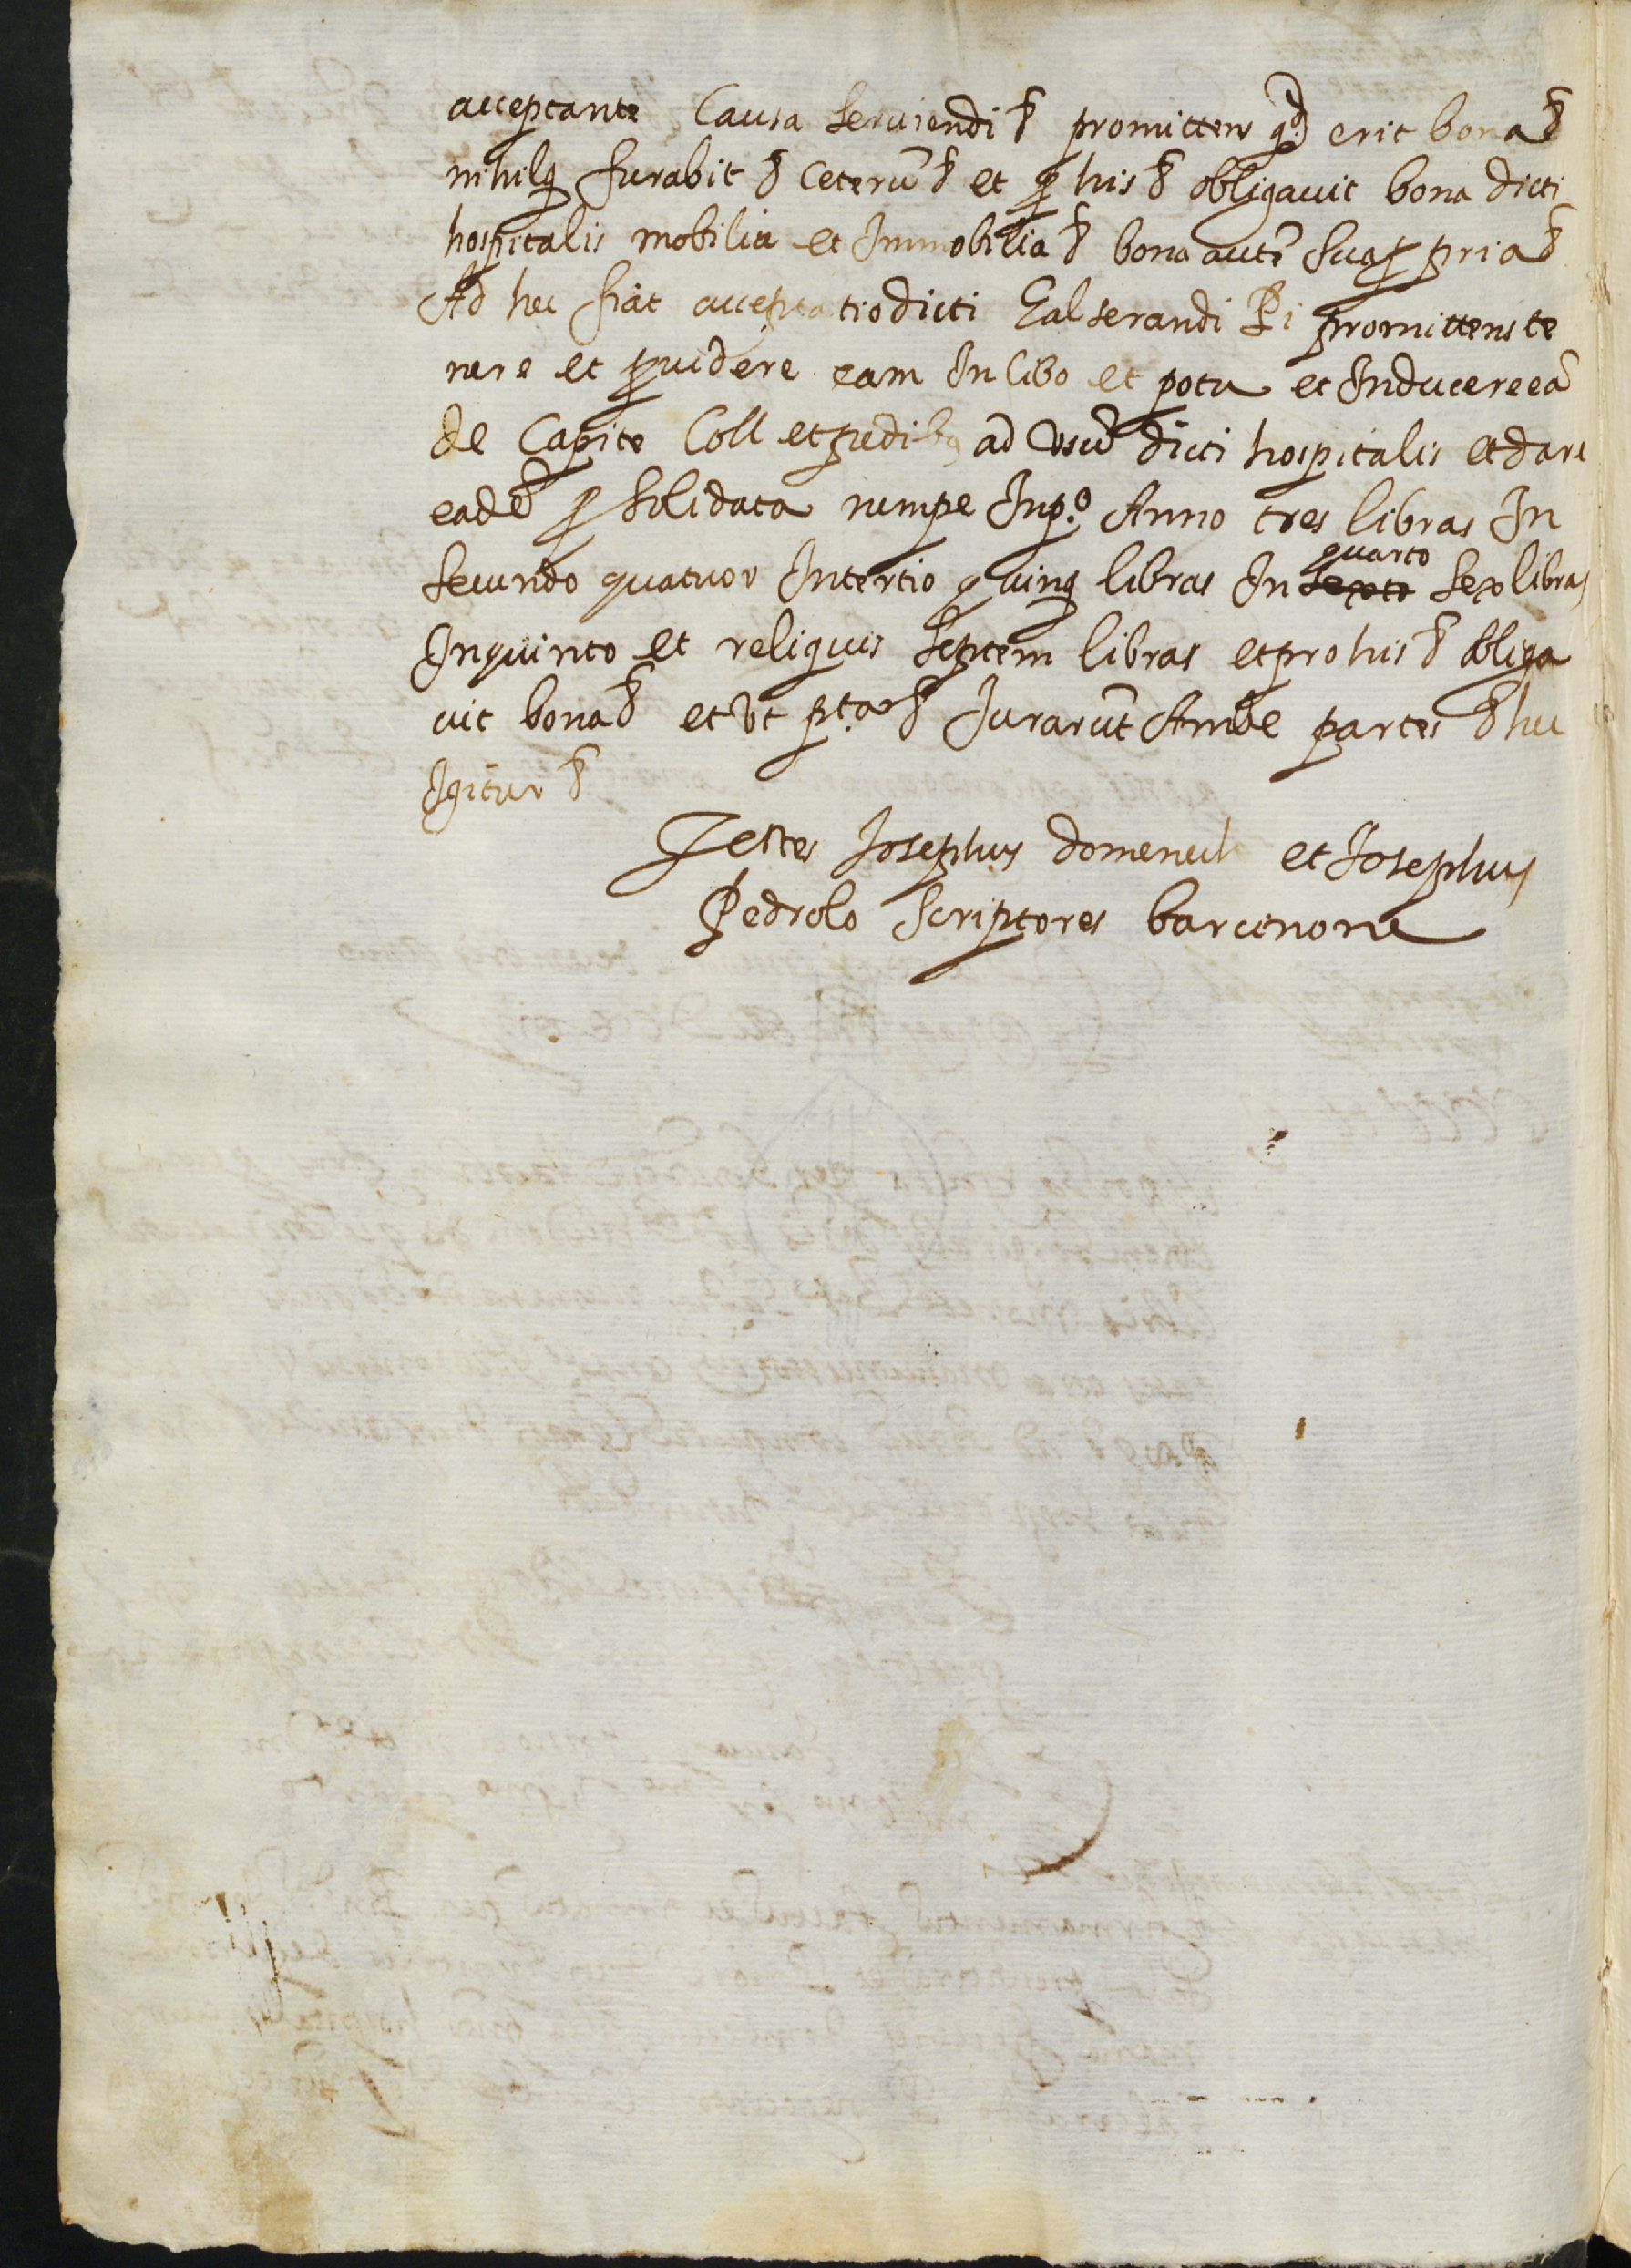 acceptante Causa seruiendi & promittens q.d erit bona &
nihilq furabit & Ceterū & et p his & obligauit bona dicti
hospitalis mobilia et Immobilia & bona autē sua p pria &
Ad hec fiat acceptatio dicti Galserandi Pi promittens te
nere et puidere eam In Cibo et potu et Inducere eā
de Capite Coll et pedibq ad Vsū dicti hospitalis et dare
eadē p solidata nempe In p.o Anno tres libras In
secundo quatuor In tertio quinq libras In sexto quarto sex libras
In quinto et reliquis septem libras et pro his & obliga
uit bona & et Vt p.ta & Jurarūt Ambe partes & hec
Igitur &
Testes Josephus domenech et Josephus
Pedrolo scriptores barcinone